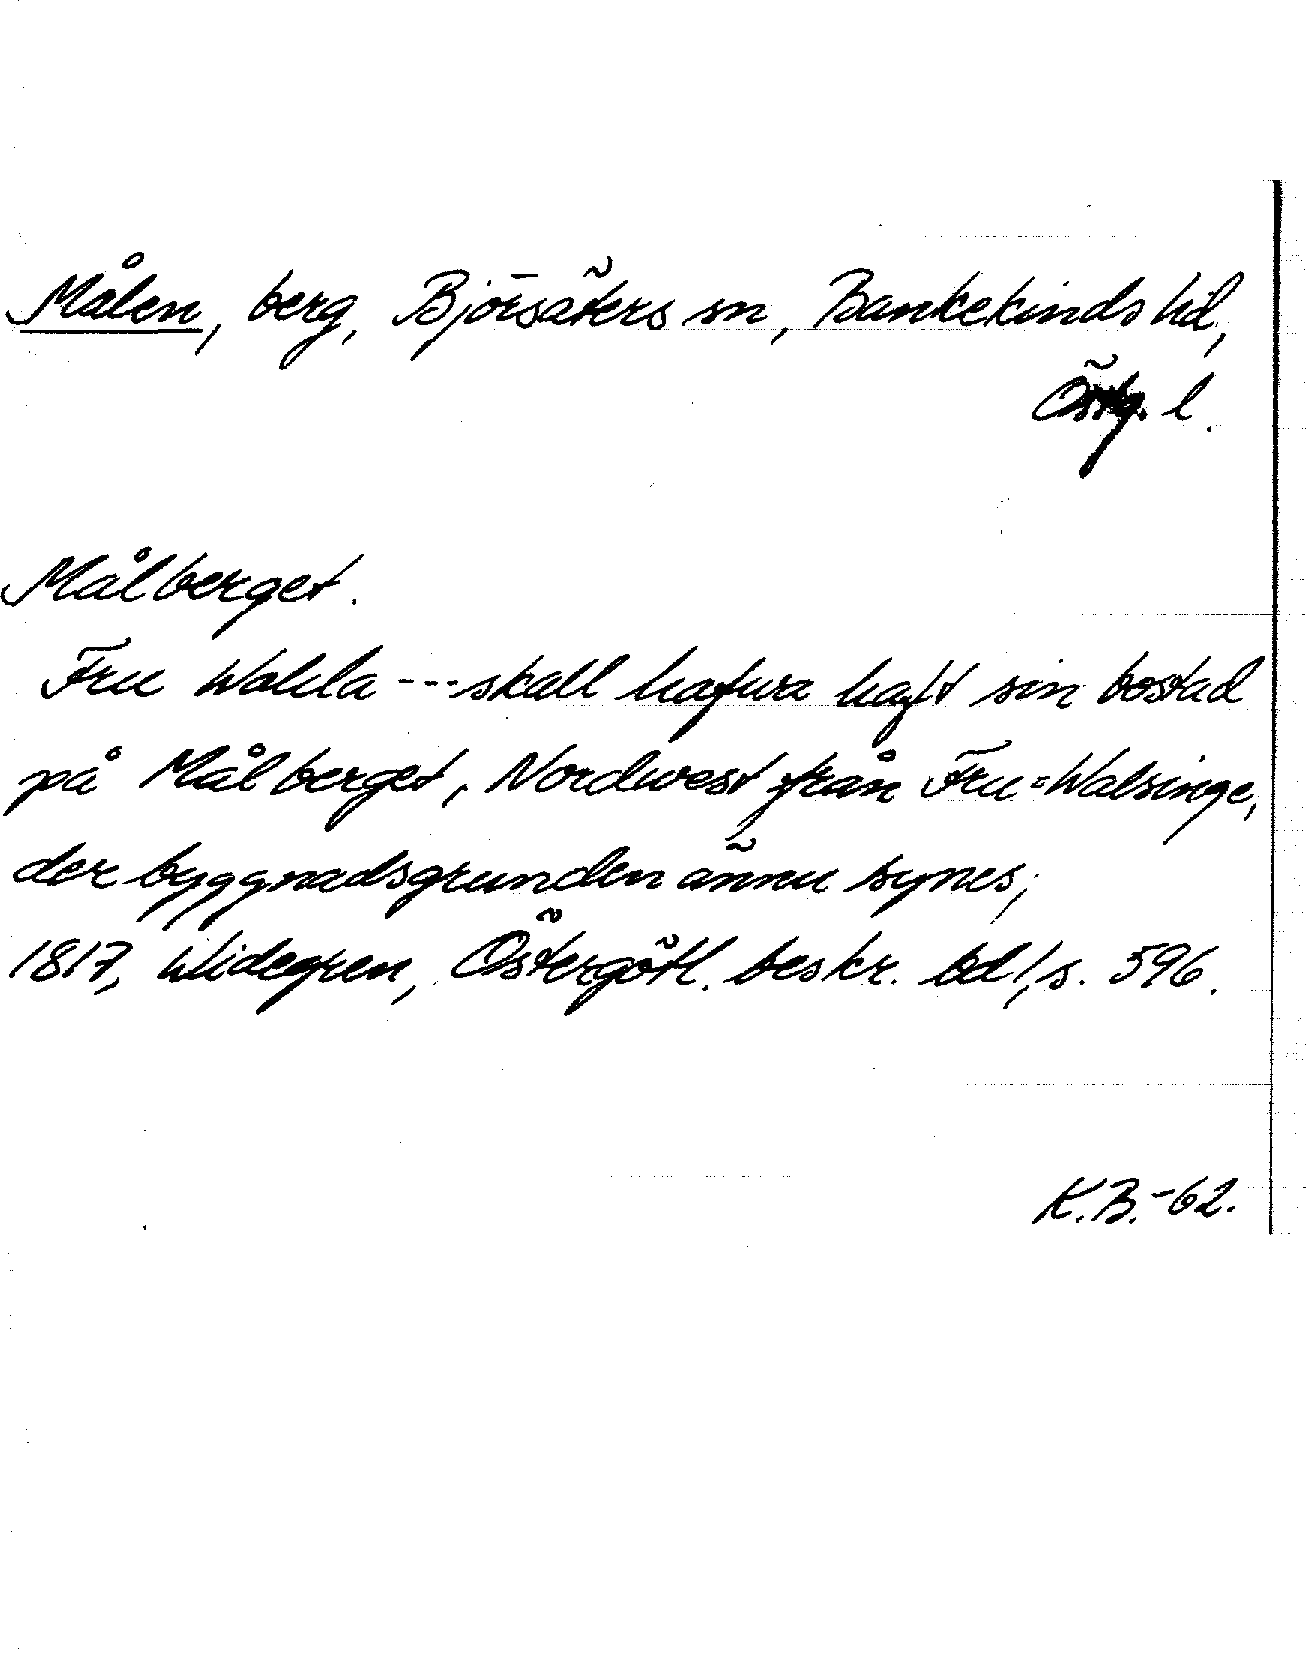 Målen, berg, Björsäters sn, Bankekinds hd,
Östg. l.
Målberget.
Fru Wahla --- skall hafwa haft sin bostad
på Målberget, Nordwest från Fru-Walsinge,
der byggnadsgrunden ännu synes;
1817, Widegren, Östergötl. beskr. bd 1, s. 596.
K.B.-62.